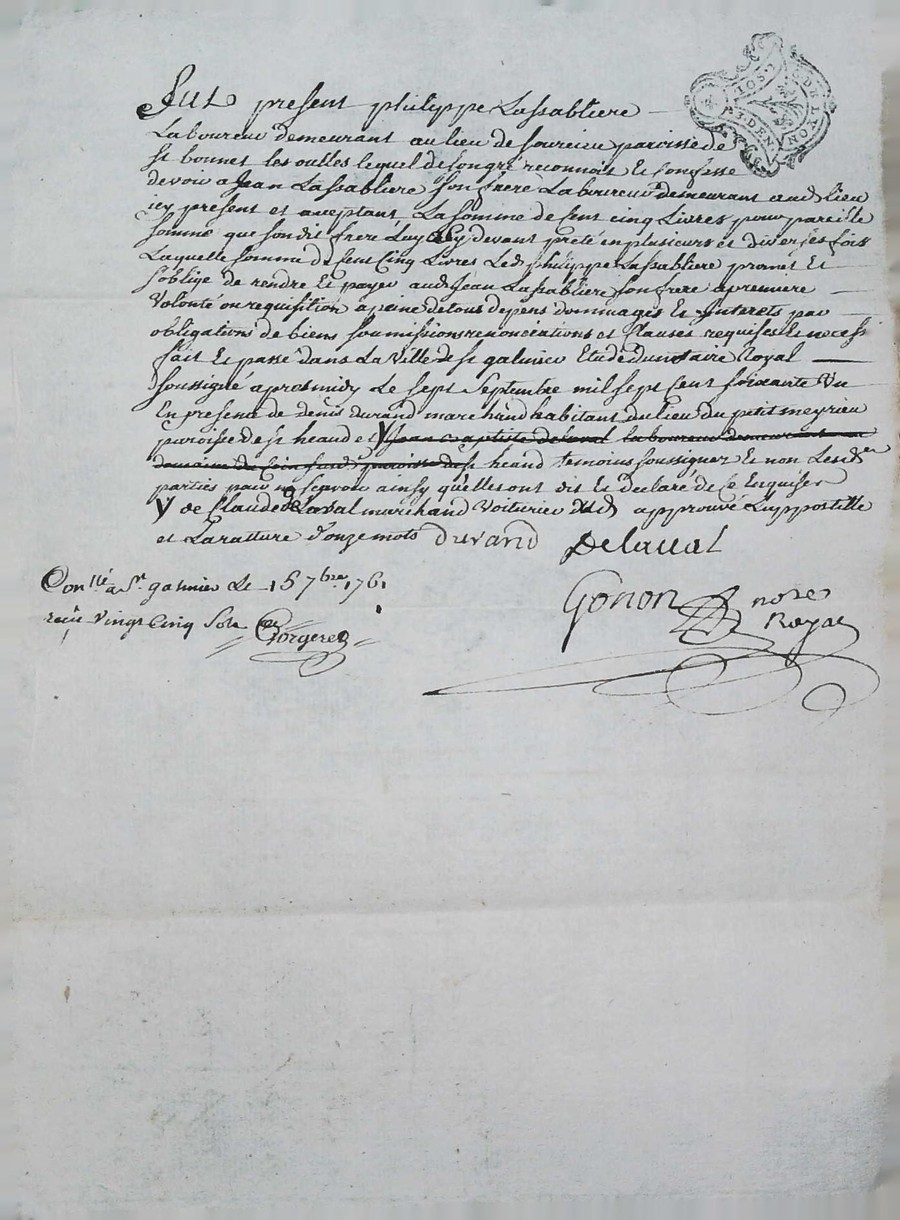 Fut present philippe Lassabliere
Laboureur demeurant au lieu de sourcieu paroisse de
st bonnet les oulles lequel de son gré reconnoit et confesse
devoir a Jean Lassabliere son frere Laboureur demeurant audt lieu
icy present et acceptant La somme de sent cinq Livres pour pareille
somme que sondit frere Luy a Cy devant preté en plusieurs et diverses fois
Laquelle somme de sent Cinq Livres Ledt philippe Lassabliere promet Et
s'oblige de rendre Et payer audt Jean Lassabliere son frere a premiere
Volonté ou requisition a peine de tous depens dommages Et Interets par
obligations de biens soumissions renonciations et Clauses requises Et necess
fait Et passé dans La Ville de st galmier Etude du notaire Royal
soussigné apres midy Le sept Septembre mil sept Cent soixante Un
En presence de denis durand marchand habitant du Lieu du petit meyrieu
paroisse de st heand et Y Jean baptiste delaval laboureur demeurant au
domaine du paroisse de st heand temoins soussignez Et non Lesdes
parties pour ne scavoir ainsy qu'elles ont dit Et declaré de Ce Enquises
Y de Claude deLaval marchand Voiturier dudt approuvé L'appostille
et La ratture d'onze mots durand Delaval
Gonon nore
Royal
Conllé a St galmier Le 15 7bre 1761
reçu Vingt Cinq Sols Gorgeret
GEN DE LYON